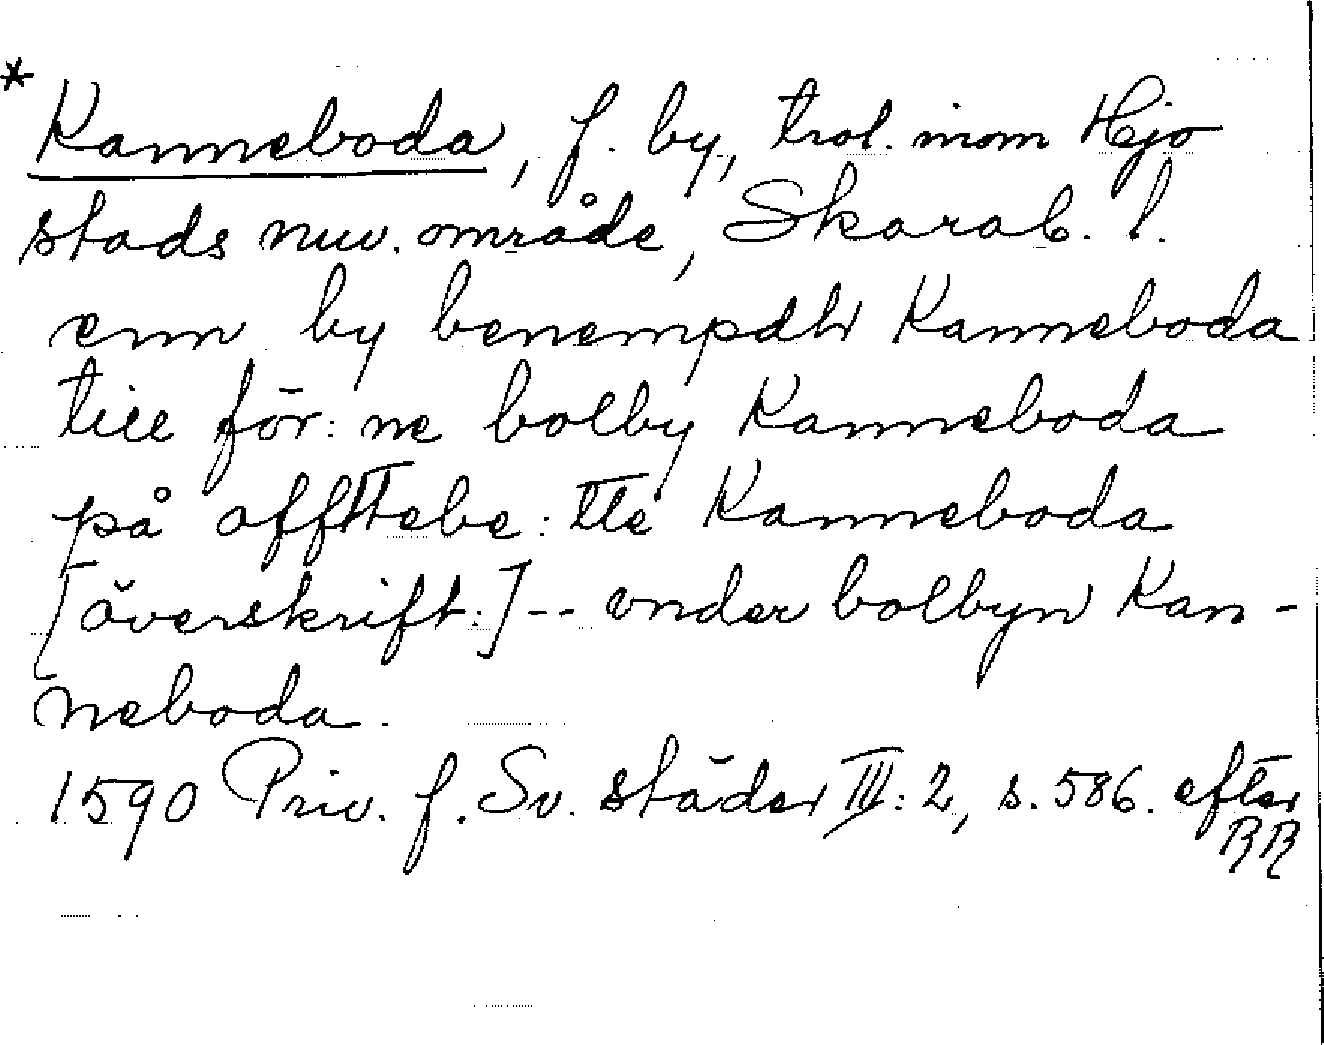 * Kanneboda, f. by, trol. inom Hjo
stads nuv. område, Skarab. l.
enn by benempdh Kanneboda
till för:ne bolby Kanneboda
på offttebe:tte Kanneboda
[överskrift:] -- vnder bolbyn Kan-
neboda.
1590 Priv. f. Sv. städer III:2, s. 586. efter
RR